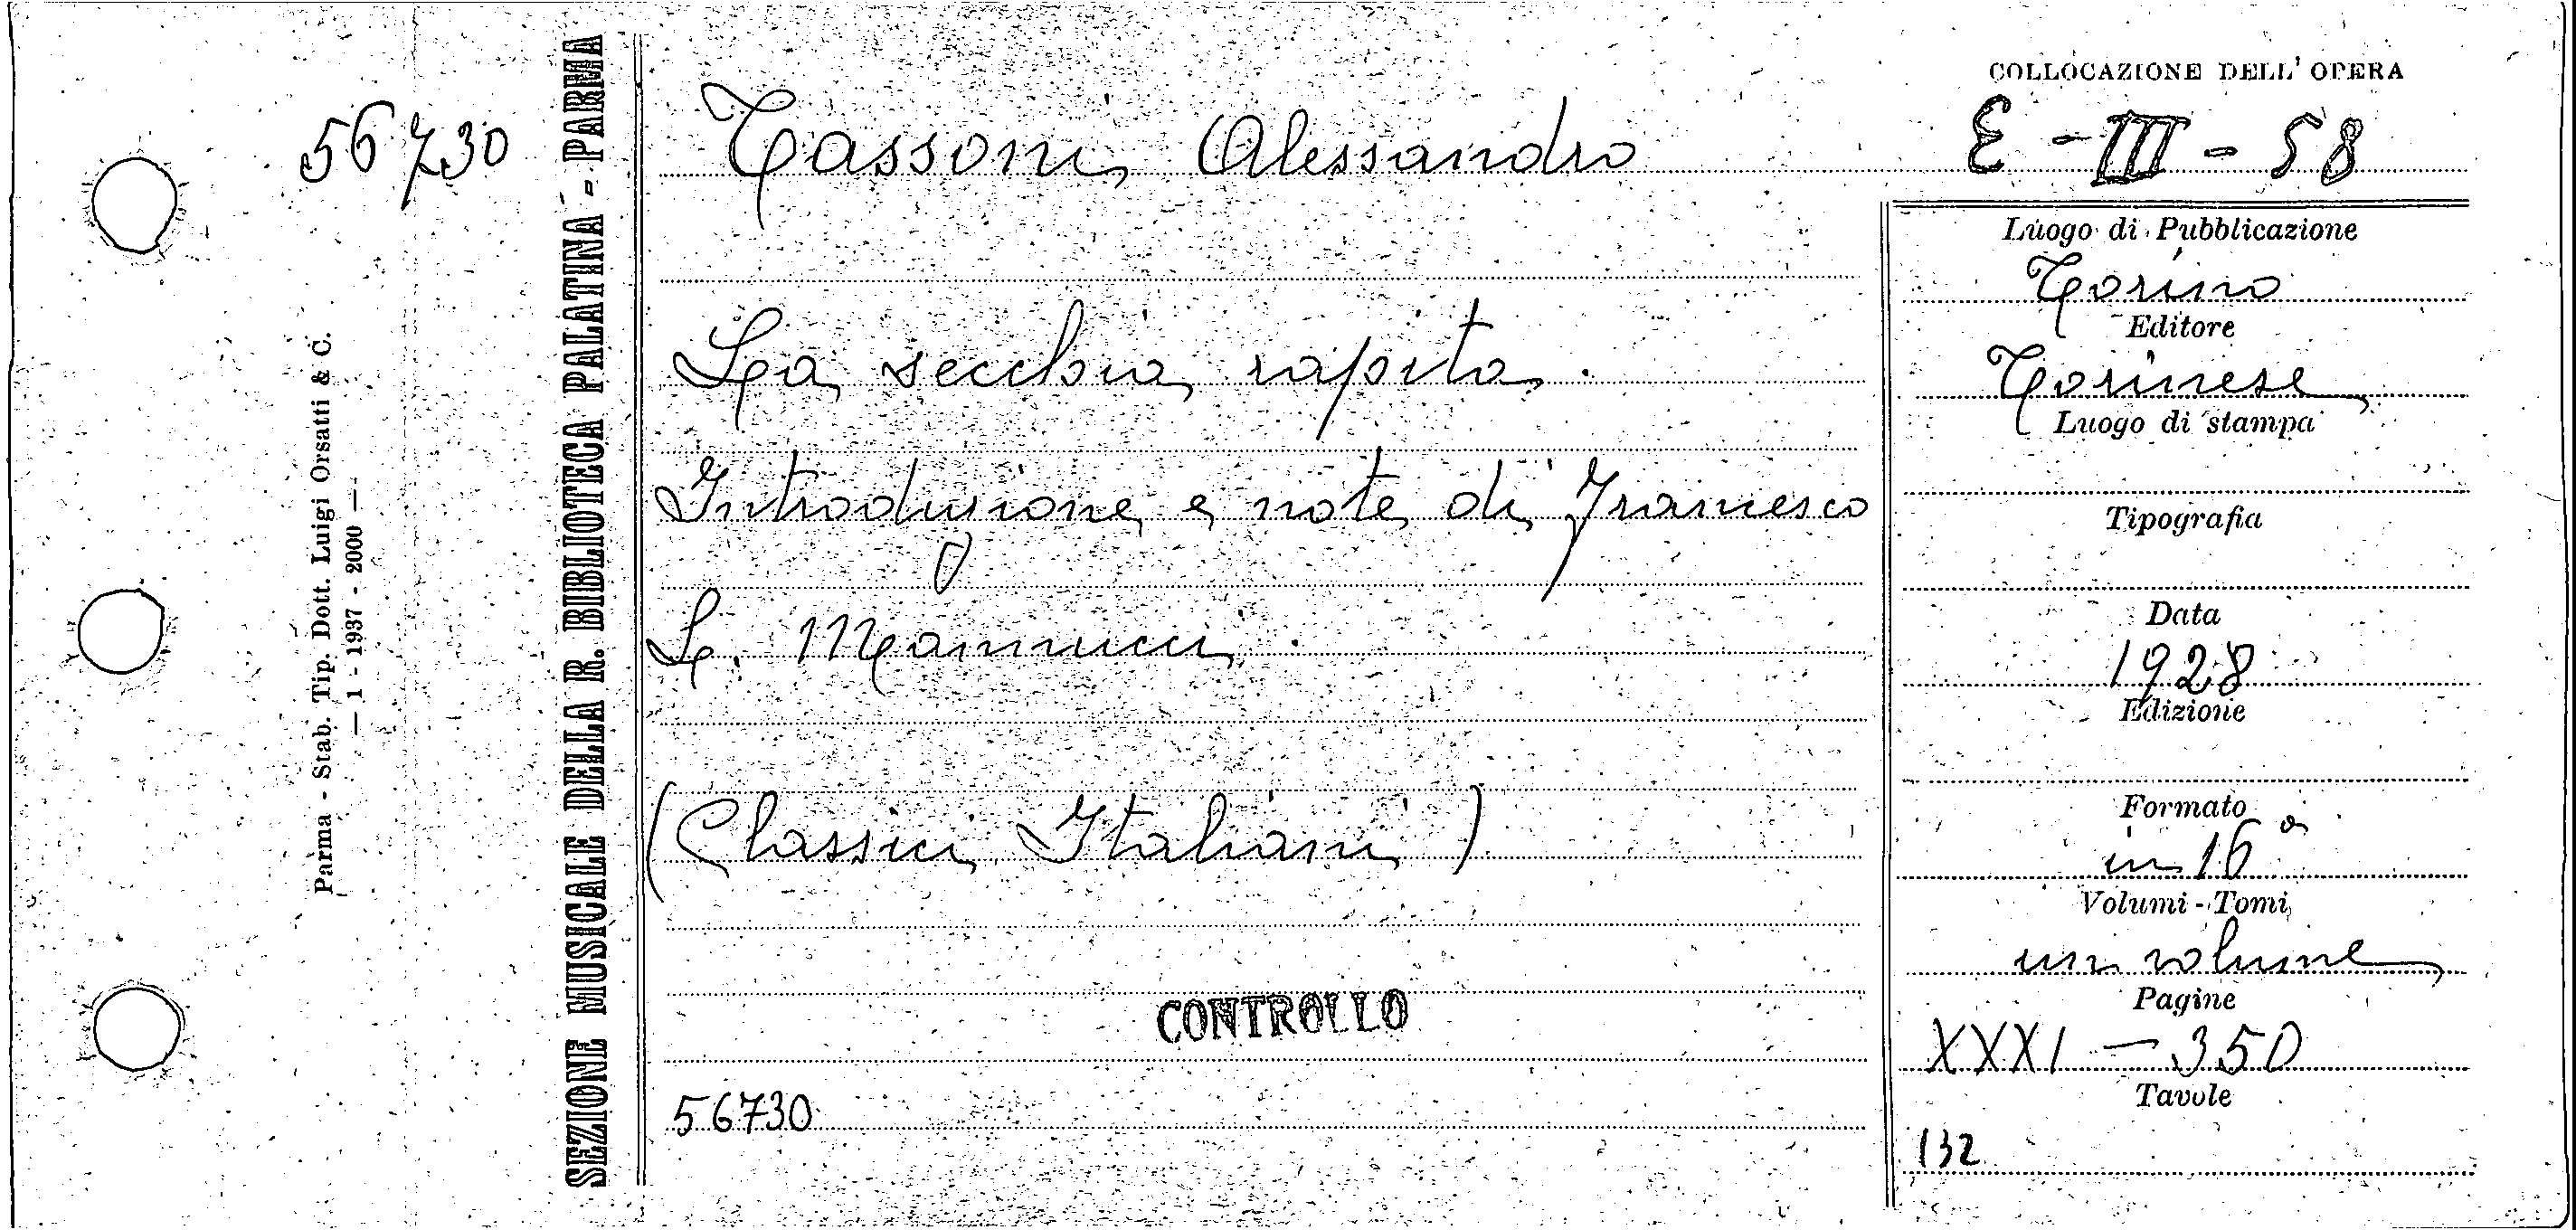 56730
Parma - Stab. Tip. Dott. Luigi Orsatti & C.
— 1 - 1937 - 2000 —
SEZIONE MUSICALE DELLA R. BIBLIOTECA PALATINA - PARMA
Tassoni Alessandro
La secchia rapita.
Introduzione e note di Francesco
L. Mannucci.
(Classici Italiani)
CONTROLLO
56730
COLLOCAZIONE DELL' OPERA
E - III - 58
Luogo di Pubblicazione
Torino
Editore
Torinese
Luogo di stampa
Tipografia
Data
1928
Edizione
Formato
in 16°
Volumi - Tomi
un volume
Pagine
XXXI — 350
Tavole
132